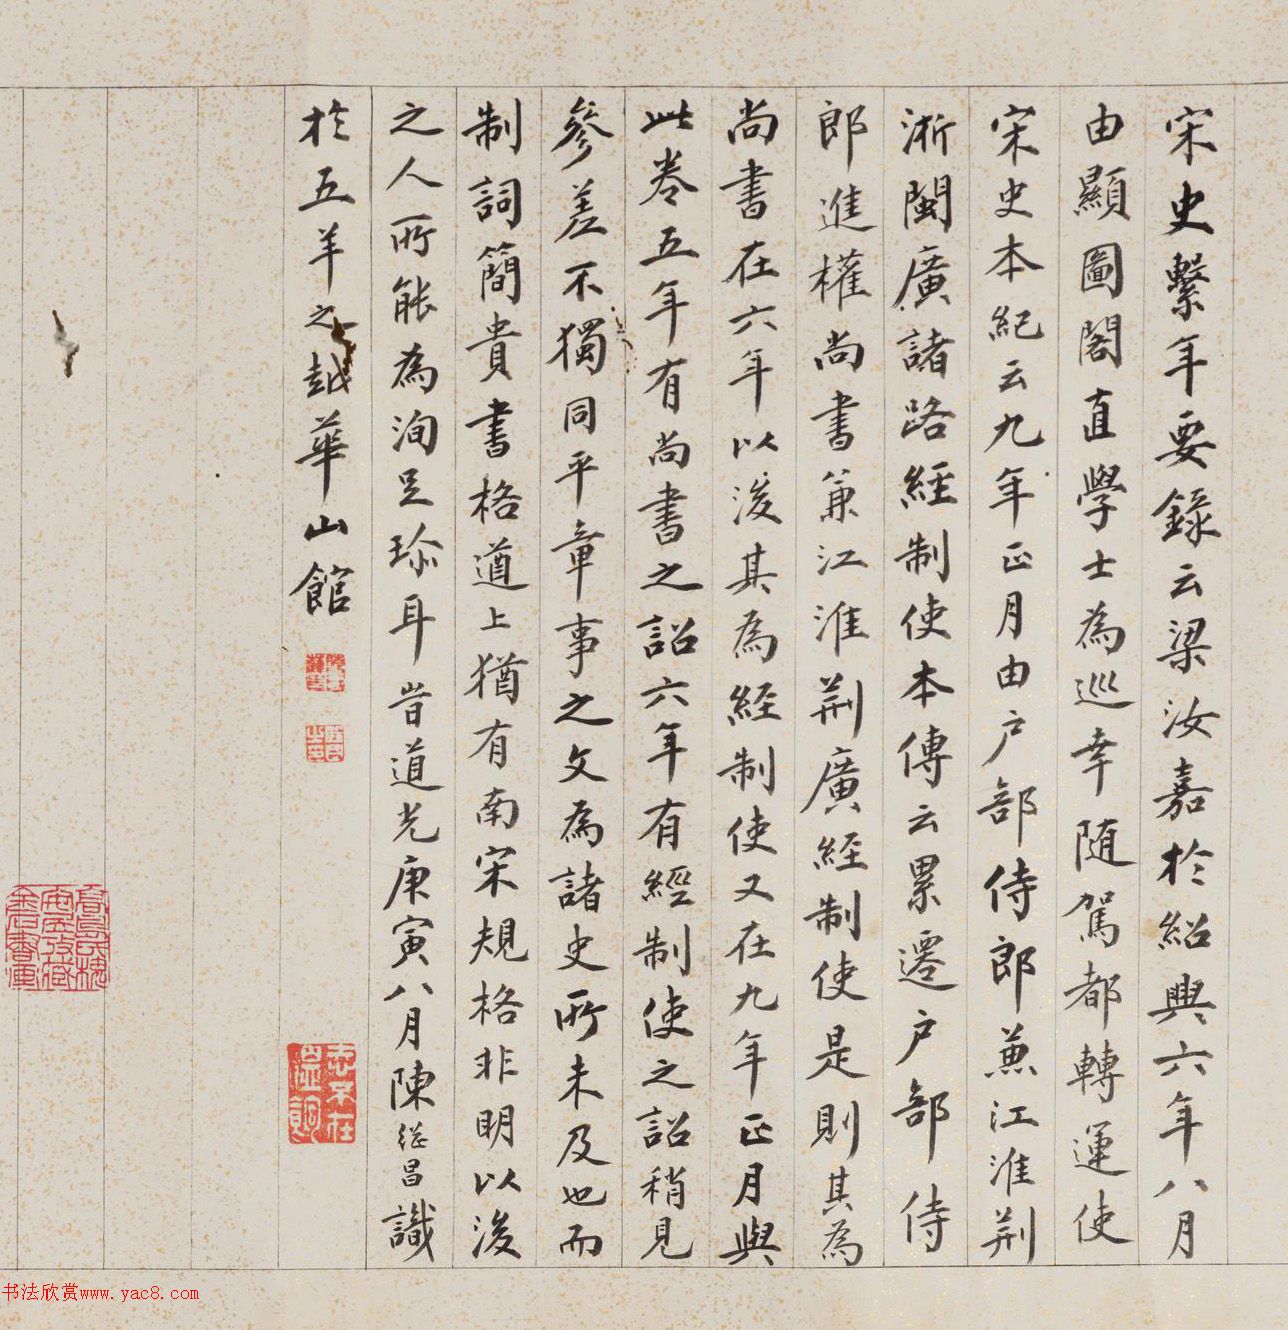 宋史繫年要錄云梁汝嘉於紹興六年八月
由顯圖閣直學士為巡幸隨駕都轉運使
宋史本紀云九年正月由戶部侍郎兼江淮荆
淅閩廣諸路經制使本傳云累遷戶部侍
郎進權尚書兼江淮荆廣經制使是則其為
尚書在六年以後其為經制使又在九年正月與
此卷五年有尚書之詔六年有經制使之詔稍見
參差不獨同平章事之文為諸史所未及也而
制詞簡貴書格道上猶有南宋規格非明以後
之人所能為洵足珎耳 旹道光庚寅八月陳継昌識
於五羊之越華山館
志不在溫飽
書法欣赏www.yac8.com